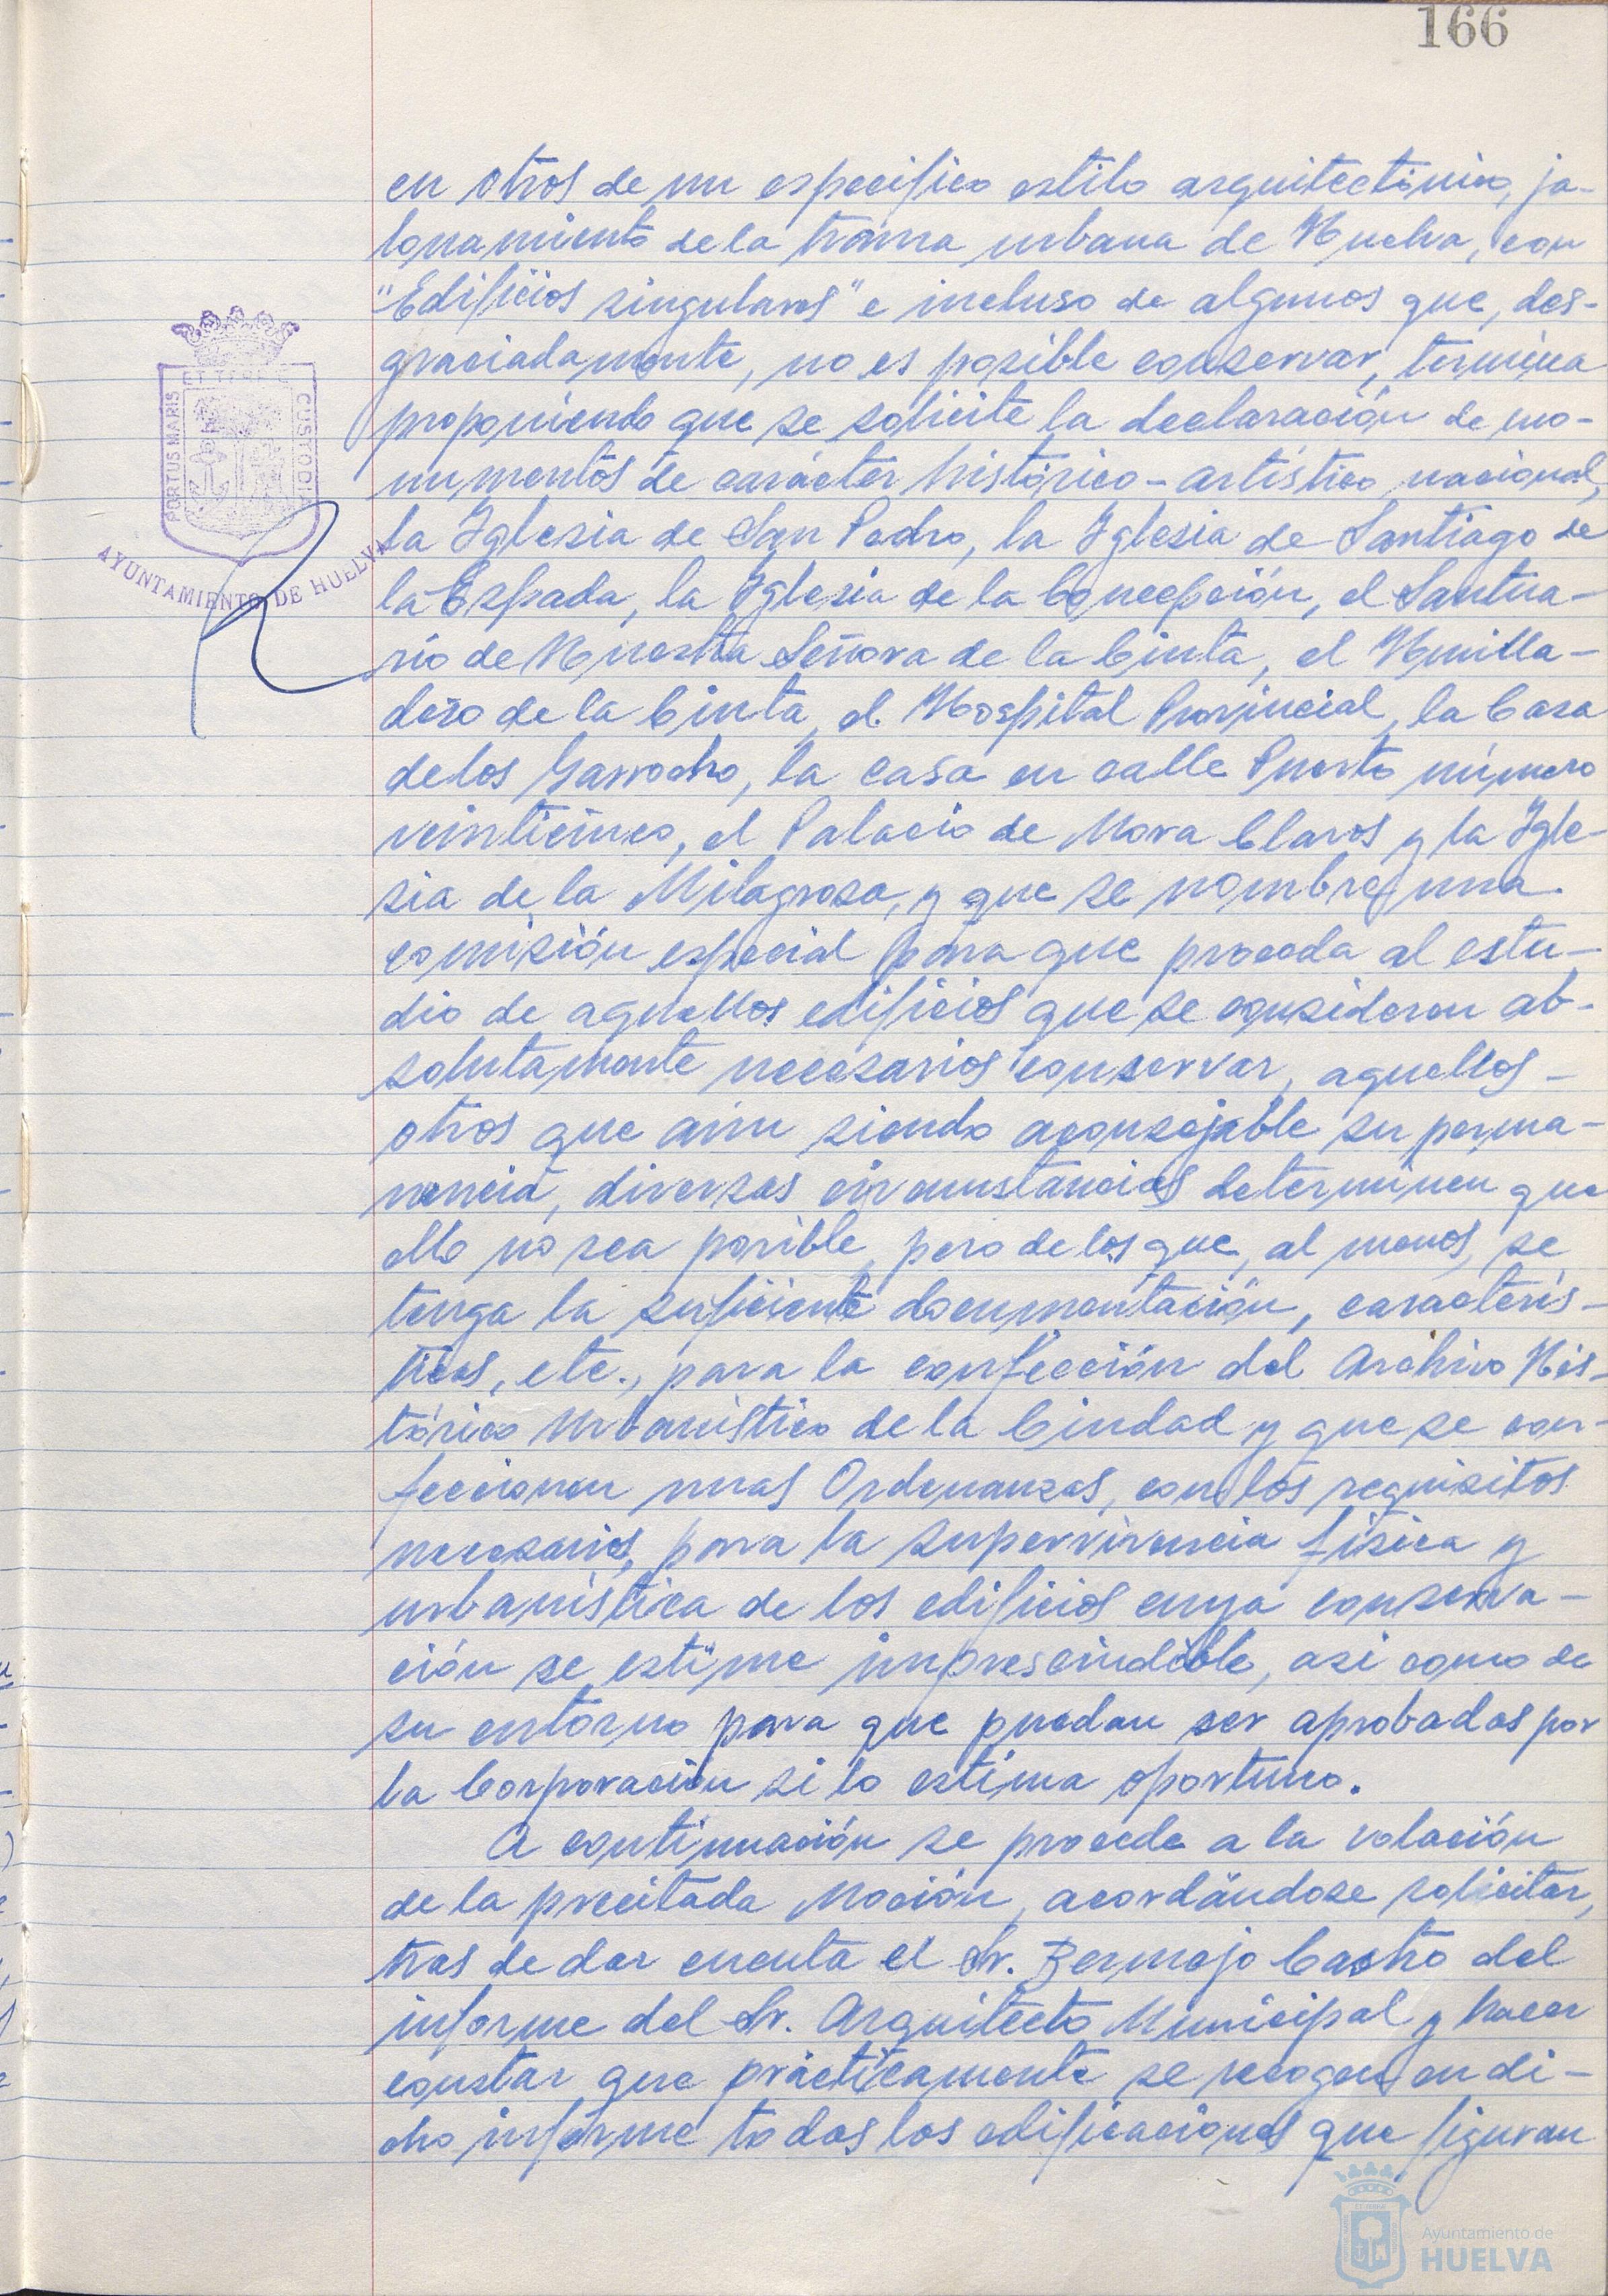 166
en otros de un especifico estilo arquitectónico, ja-
lonamiento de la trama urbana de Huelva, con
"Edificios singulares" e incluso de algunos que, des-
graciadamente, no es posible conservar, termina
proponiendo que se solicite la declaración de mo-
numentos de carácter histórico-artístico nacional,
la Iglesia de San Pedro, la Iglesia de Santiago de
la Espada, la Iglesia de la Concepción, el Santua-
rio de Nuestra Señora de la Cinta, el Humilla-
dero de la Cinta, el Hospital Provincial, la Casa
de los Garrocho, la casa en calle Puerto número
veinticinco, el Palacio de Mora Claros y la Igle-
sia de la Milagrosa, y que se nombre una
comisión especial para que proceda al estu-
dio de aquellos edificios que se consideren ab-
solutamente necesarios conservar, aquellos -
otros que aún siendo aconsejable su perma-
nencia, diversas circunstancias determinen que
ello no sea posible, pero de los que, al menos, se
tenga la suficiente documentación, caracterís-
ticas, etc., para la confección del Archivo His-
tórico Urbanístico de la Ciudad y que se con-
feccionen unas Ordenanzas, con los requisitos
necesarios, para la supervivencia física y
urbanística de los edificios cuya conserva-
ción se estime imprescindible, asi como de
su entorno para que puedan ser aprobadas por
la Corporación si lo estima oportuno.
A continuación se procede a la votación
de la precitada Moción, acordándose solicitar,
tras de dar cuenta el Sr. Bermejo Castro del
informe del Sr. Arquitecto Municipal y hacer
constar que prácticamente se recogen en di-
cho informe todas las edificaciones que figuran
PORTUS MARIS
ET TERRE
CUSTODIA
AYUNTAMIENTO DE HUELVA
Ayuntamiento de
HUELVA